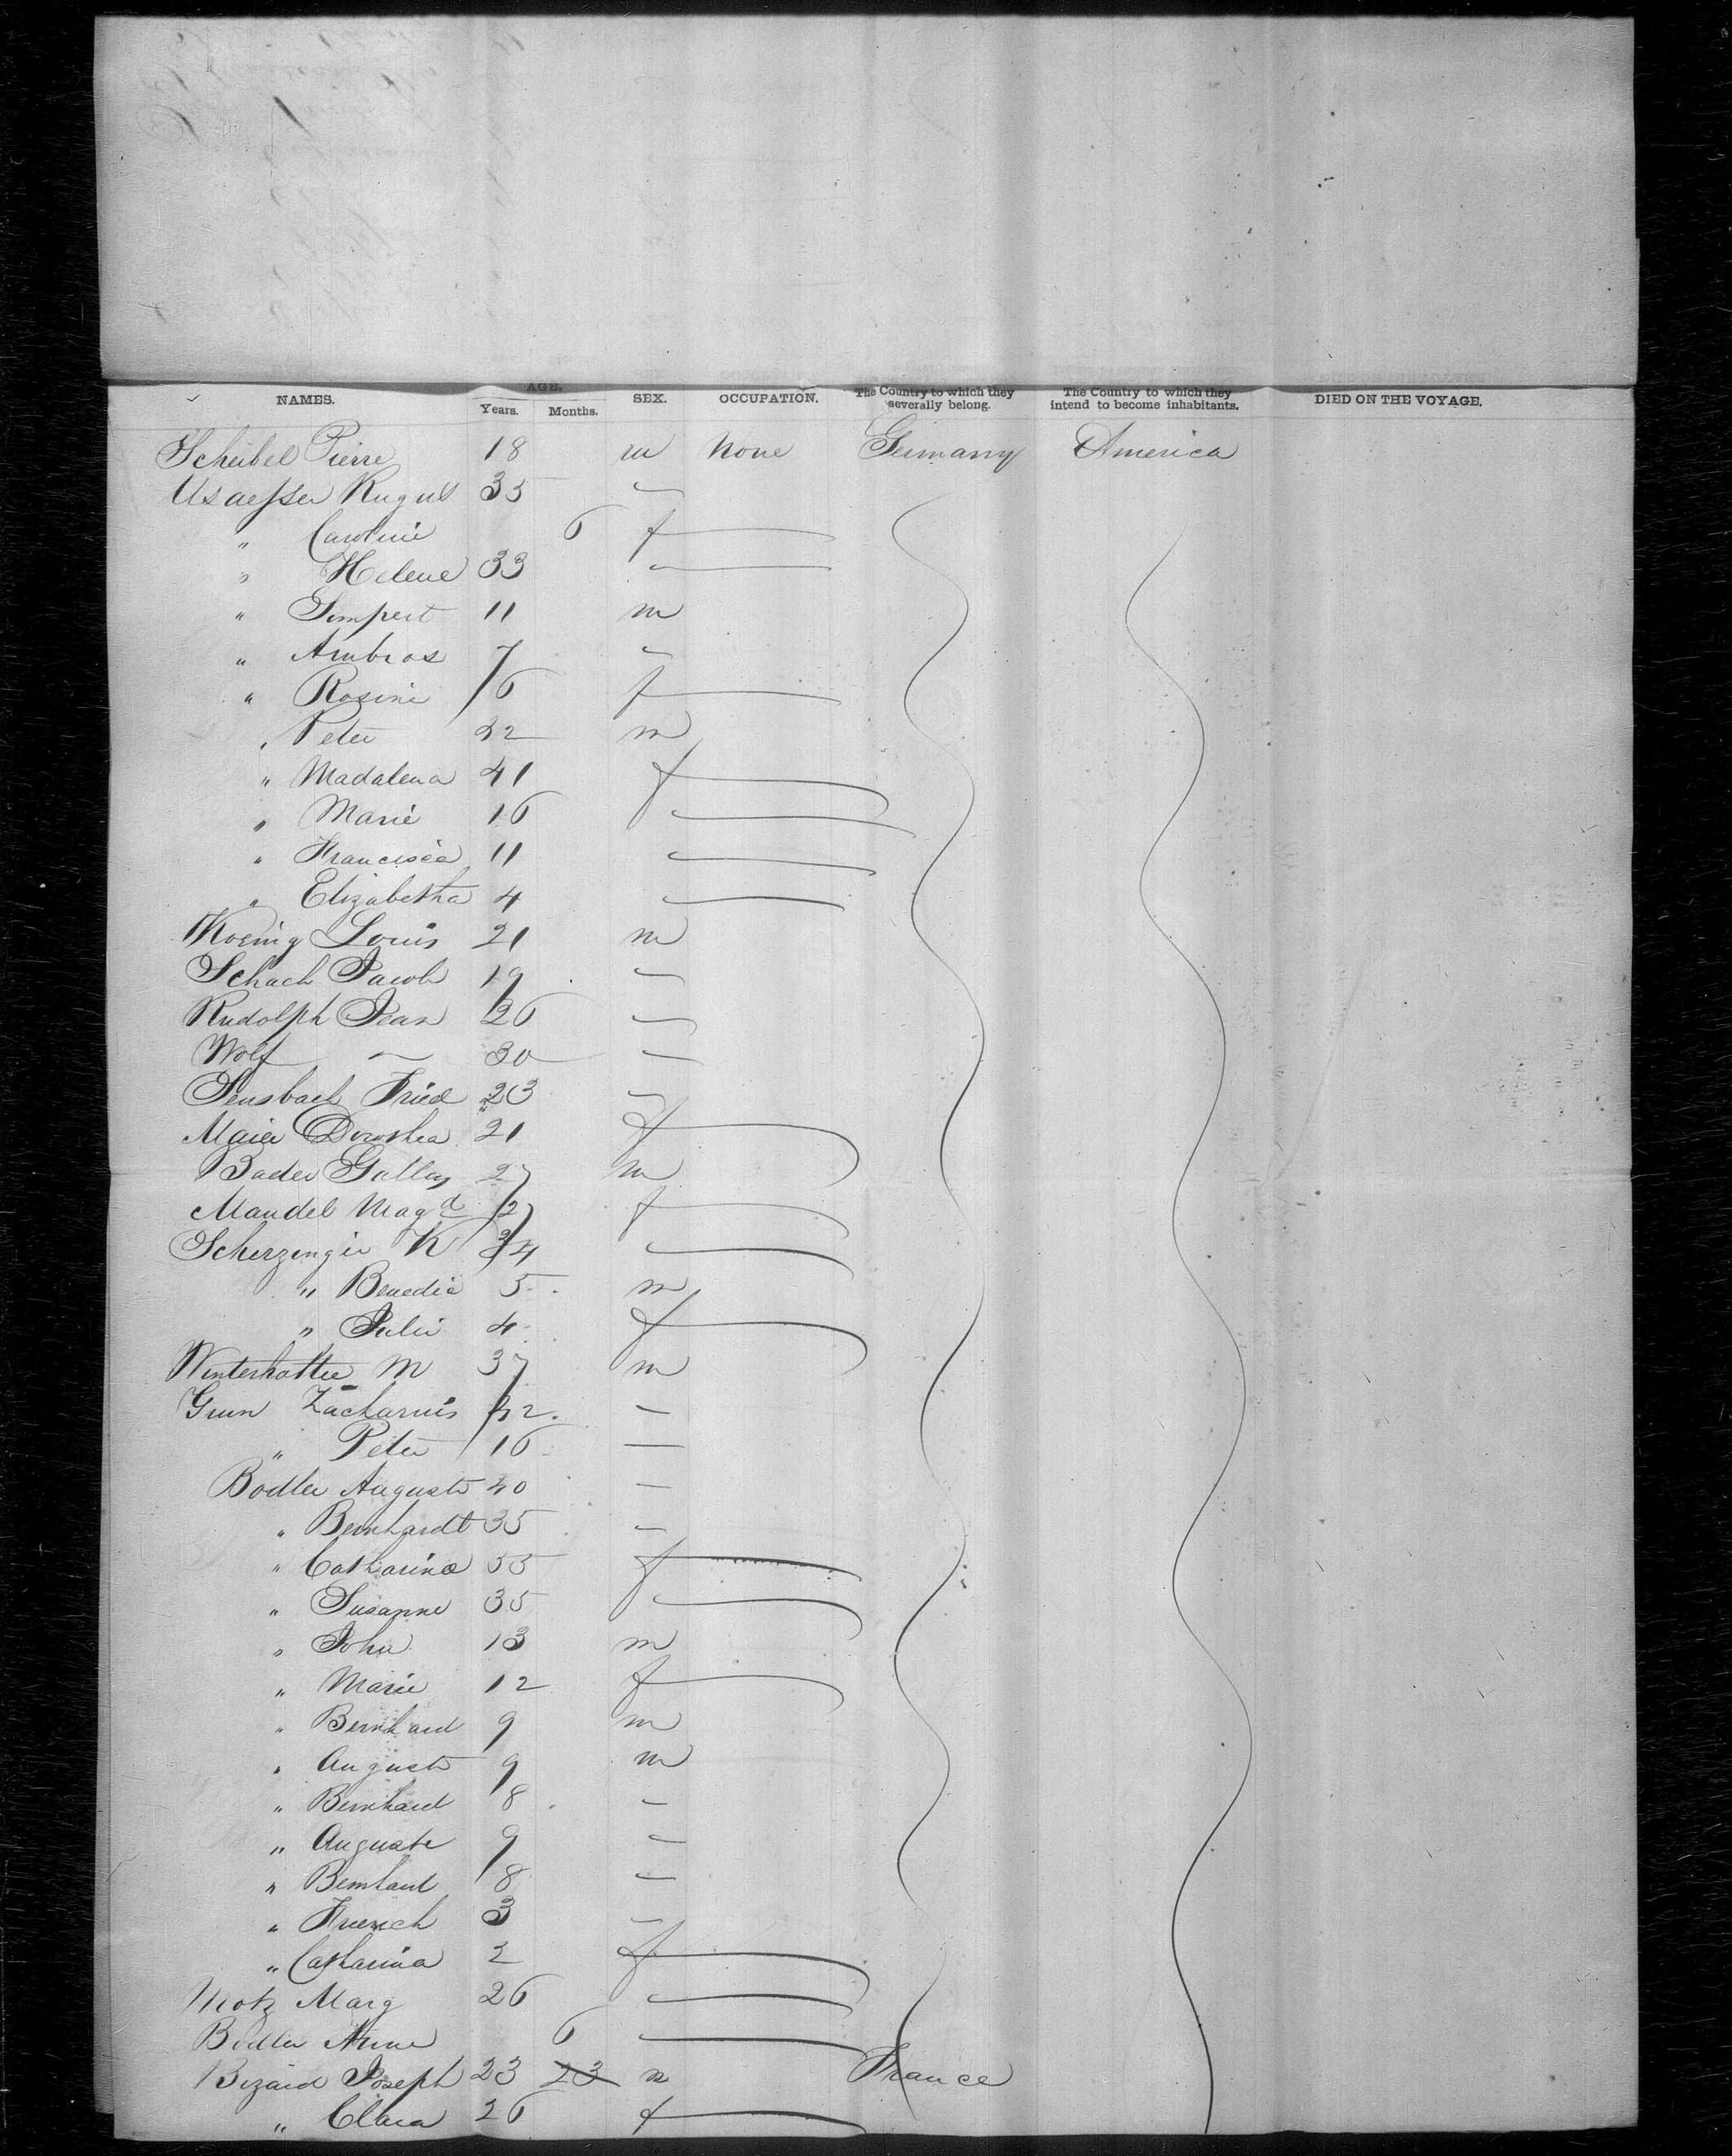 NAMES. AGE. Years. Months. SEX. OCCUPATION. The Country to which they severally belong. The Country to which they intend to become inhabitants. DIED ON THE VOYAGE.
Scheibel Pierre 18 m None Germany America
35
" Caroline 6 f
" Helene 33
" Simpert 11 m
" Ambros 7
" Rosine 6 f
" Peter m
" Madalena 41 f
" Marie 16
" Francisca 11
" Elizabetha 4
Koenig Louis 21 m
Schach Jacob 19
Rudolph Jean 26
Wolf — 30
Sensbach Fried 23
Maier Dorothea 21 f
Bader Gallus 27 m
Mandel Magd 27 f
Scherzinger K 34
" Benedic 5 m
" Julie 4 f
Winterhalter M 37 m
Grun Zacharius 42
" Peter 16
Bodler Auguste 40
" Bernhardt 35
" Catharina 55 f
" Susanne 35
" John 13 m
" Marie 12 f
" Bernhard 9 m
" Auguste 9 m
" Bernhard 8
" Auguste 9
" Bernhard 8
" 3
" Catharina 2 f
Motz Marg 26
Bodler Anne 6
Bizard Joseph 23 23 m France
" Clara 26 f